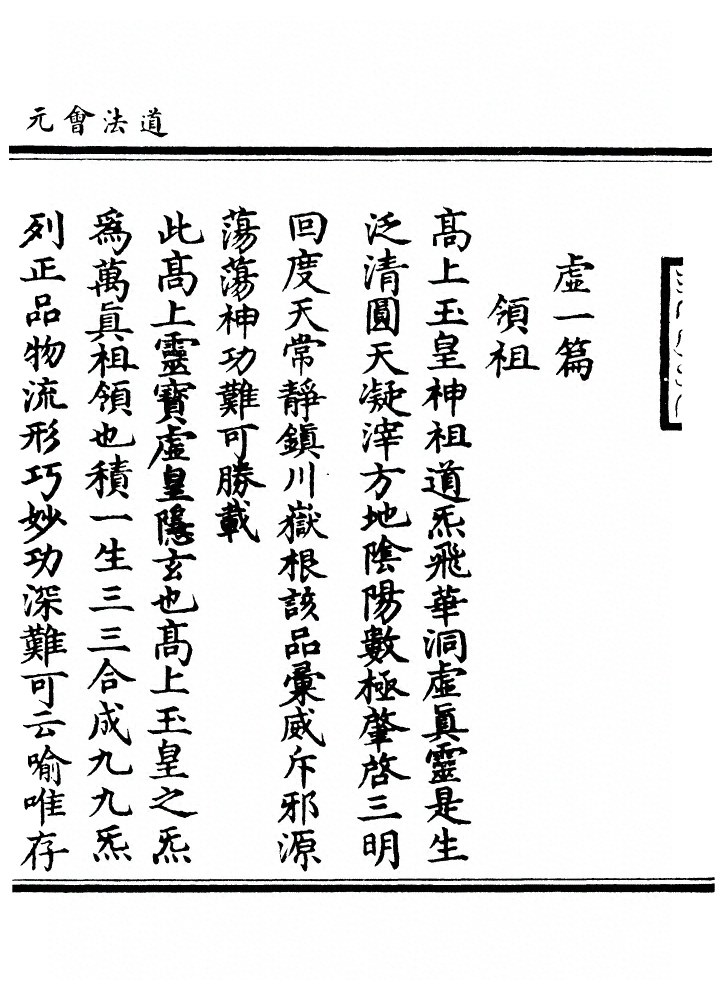 道法會元
虛一篇
領祖
高上玉皇神祖道炁飛華洞虛眞靈是生
泛清圓天凝滓方地陰陽數極肇啓三明
回度天常靜鎭川嶽根該品彙威斥邪源
蕩蕩神功難可勝載
此高上靈寶虛皇隱玄也高上玉皇之炁
爲萬眞祖領也積一生三三合成九九炁
列正品物流形巧妙功深難可云喻唯存